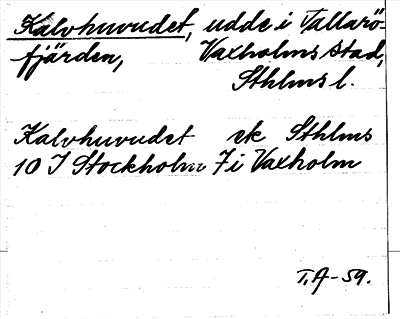 Kalvhuvudet, udde i Tallarö-
fjärden, Vaxholms stad,
Sthlms l.
Kalvhuvudet ek Sthlms
10 I Stockholm 7 i Vaxholm
T.A-59.